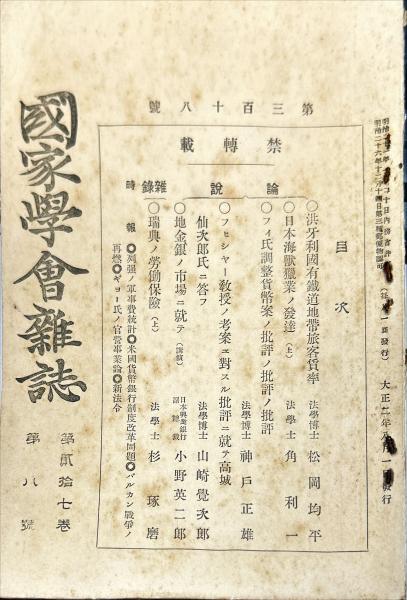 明治二十六年十二月十四日第三種郵便物認可
大正二年八月一日發行
第三百十八號
禁轉載
目次
論說
○洪牙利國有鐵道地帶旅客賃率 法學博士 松岡均平
○日本海獸獵業ノ發達(上) 法學士 角利一
○フィ氏調整貨幣案ノ批評ノ批評ノ批評 法學博士 神戶正雄
○フヒシャー敎授ノ考案ニ對スル批評ニ就テ高城
仙次郎氏ニ答フ 法學博士 山崎覺次郎
○地金銀ノ市場ニ就テ(講演) 日本興業銀行副總裁 小野英二郎
雜錄
○瑞典ノ勞働保險(上) 法學士 杉琢磨
時報
◎列强ノ軍事費統計◎米國貨幣銀行制度改革問題◎バルカン戰爭ノ
再燃◎ギョー氏ノ官營事業論◎新法令
國家學會雜誌
第貳拾七卷
第八號